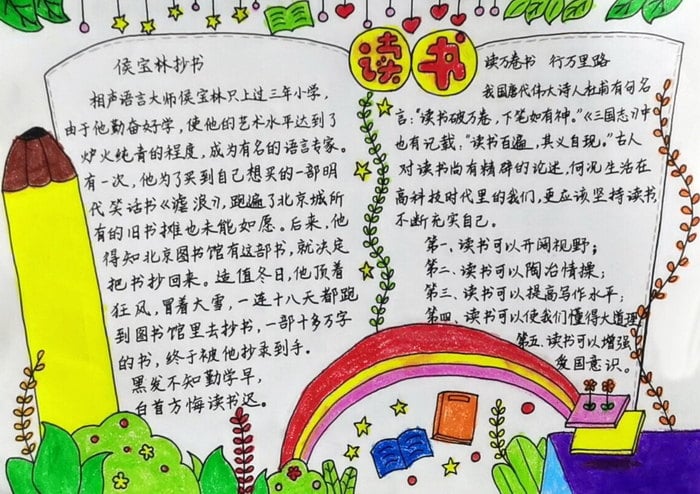 读书
侯宝林抄书
相声语言大师侯宝林只上过三年小学，
由于他勤奋好学，使他的艺术水平达到了
炉火纯青的程度，成为有名的语言专家。
有一次，他为了买到自己想买的一部明
代笑话书《谑浪》，跑遍了北京城所
有的旧书摊也未能如愿。后来，他
得知北京图书馆有这部书，就决定
把书抄回来。适值冬日，他顶着
狂风，冒着大雪，一连十八天都跑
到图书馆里去抄书，一部十多万字
的书，终于被他抄录到手。
黑发不知勤学早，
白首方悔读书迟。
读万卷书 行万里路
我国唐代伟大诗人杜甫有句名
言："读书破万卷，下笔如有神。"《三国志》中
也有记载："读书百遍，其义自现。"古人
对读书尚有精辟的论述，何况生活在
高科技时代里的我们，更应该坚持读书，
不断充实自己。
第一、读书可以开阔视野；
第二、读书可以陶冶情操；
第三、读书可以提高写作水平；
第四、读书可以使我们懂得大道理
第五、读书可以增强
爱国意识。